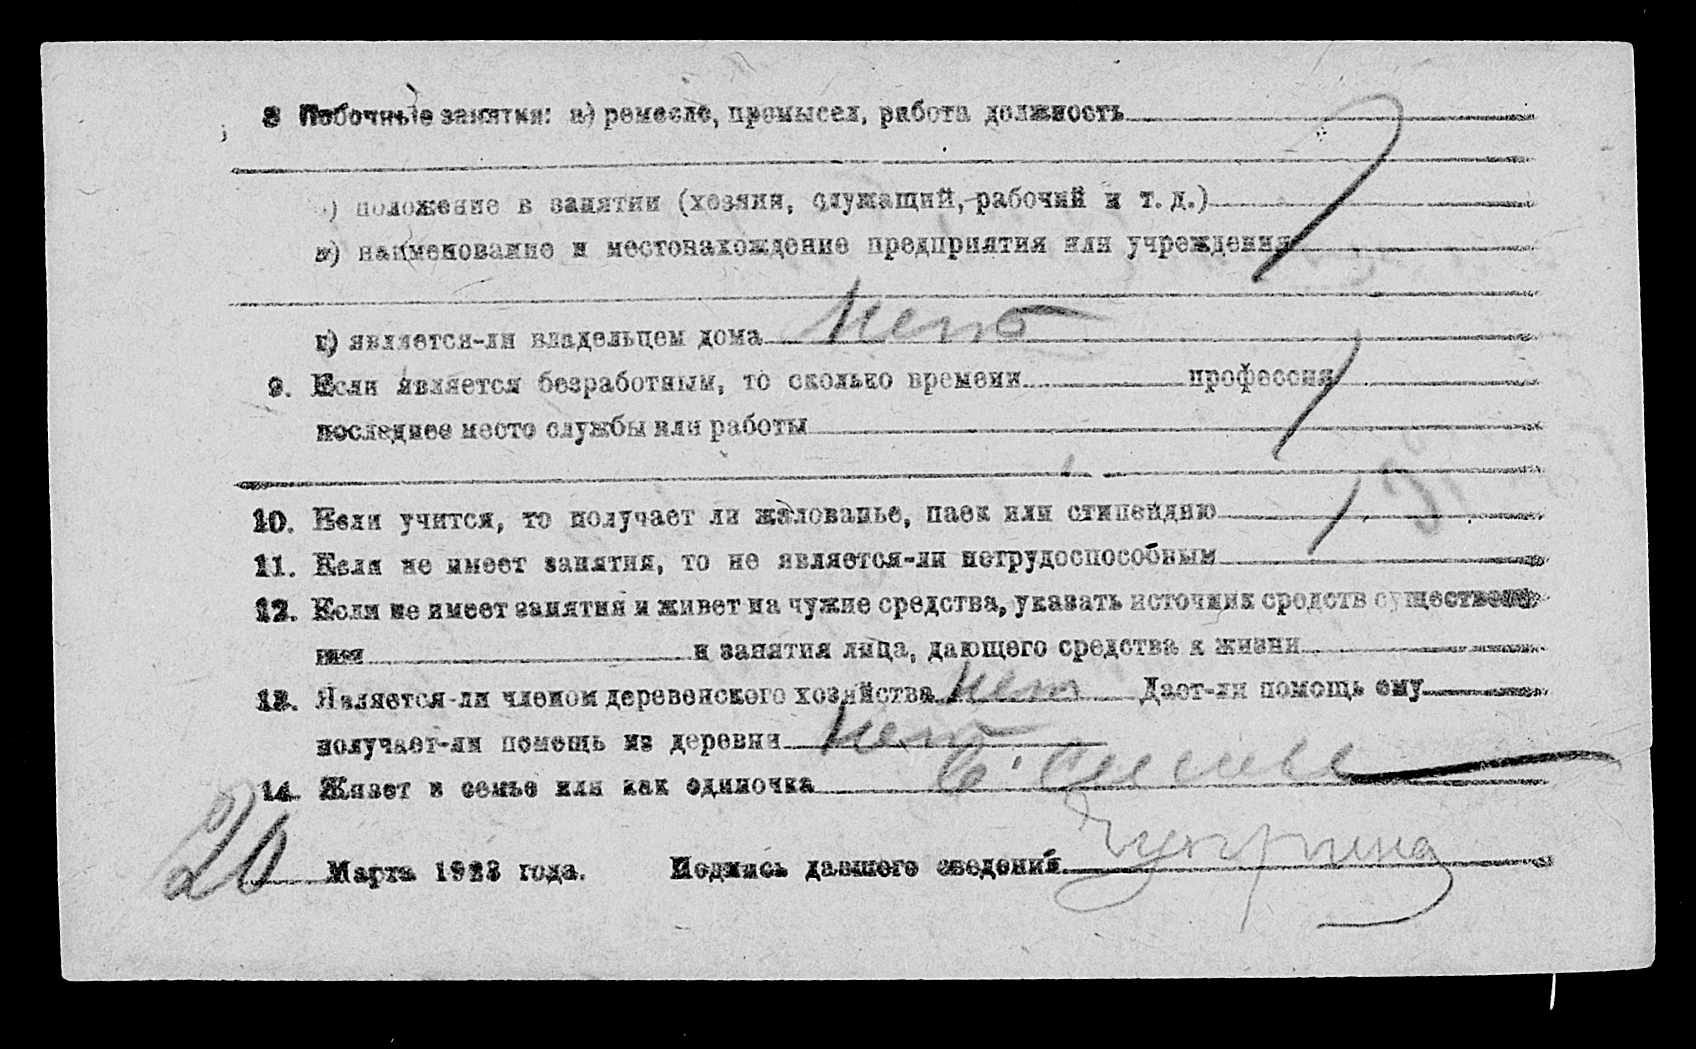 8 Побочные занятия: а) ремесло, промысел, работа должность
б) положение в занятии (хозяин, служащий, рабочий и т. д.)
в) наименование и местонахождение предприятия или учреждения
г) является-ли владельцем дома нет
9. Если является безработным, то сколько времени профессия
последнее место службы или работы
10. Если учится, то получает ли жалованье, паек или стипендию
11. Если не имеет занятия, то не является-ли нетрудоспособным
12. Если не имеет занятия и живет на чужие средства, указать источник средств существова-
ния и занятия лица, дающего средства к жизни
13. Является-ли членом деревенского хозяйства нет Дает-ли помощь ему
получает-ли помощь из деревни нет
14. Живет в семье или как одиночка в семье
20 Марта 1923 года. Подпись давшего сведения Чуприна